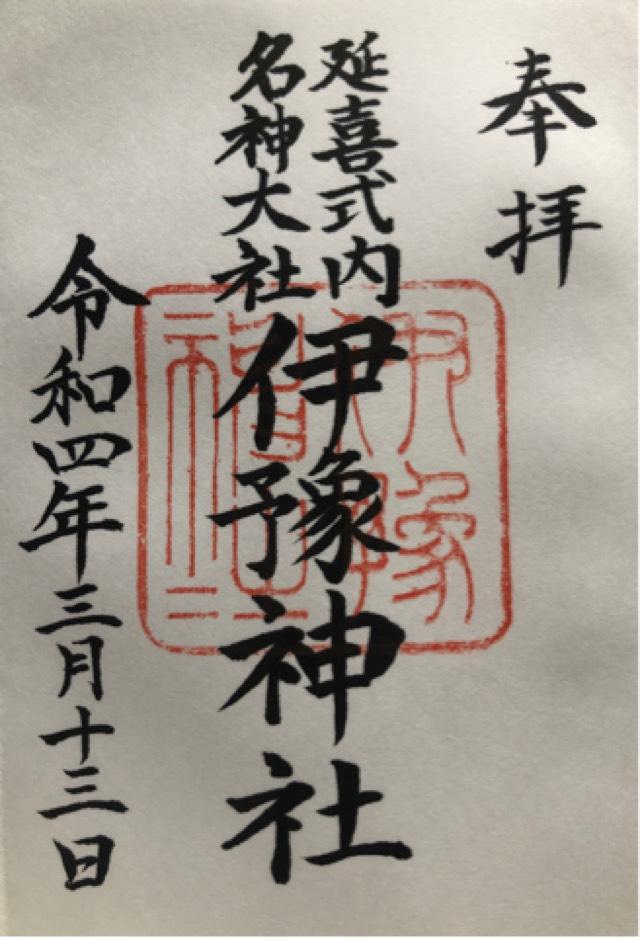 奉拝
延喜式内
名神大社
伊豫神社
令和四年三月十三日